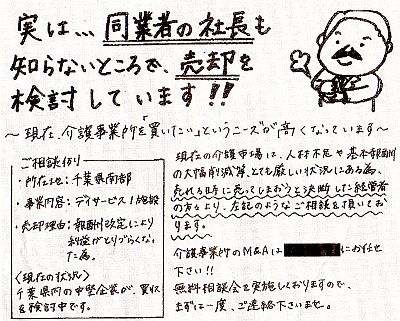 実は… 同業者の社長も
知らないところで、売却を
検討しています!!
～現在、介護事業所を"買いたい"というニーズが高くなっています～
ご相談例
・所在地：千葉県南部
・事業内容：デイサービス1施設
・売却理由：報酬改定により
利益がとりづらくなっ
た為。
〈現在の状況〉
千葉県内の中堅企業が、買収
を検討中です。
現在の介護市場は、人材不足や基本報酬
の大幅削減等、とても厳しい状況にある為、
売れる時に売ってしまおうと決断した経営者
の方々より、左記のようなご相談を頂いてお
ります。
介護事業所のM&Aは
にお任せ
下さい!!
無料相談会を実施しておりますので、
まずは一度、ご連絡下さいませ。